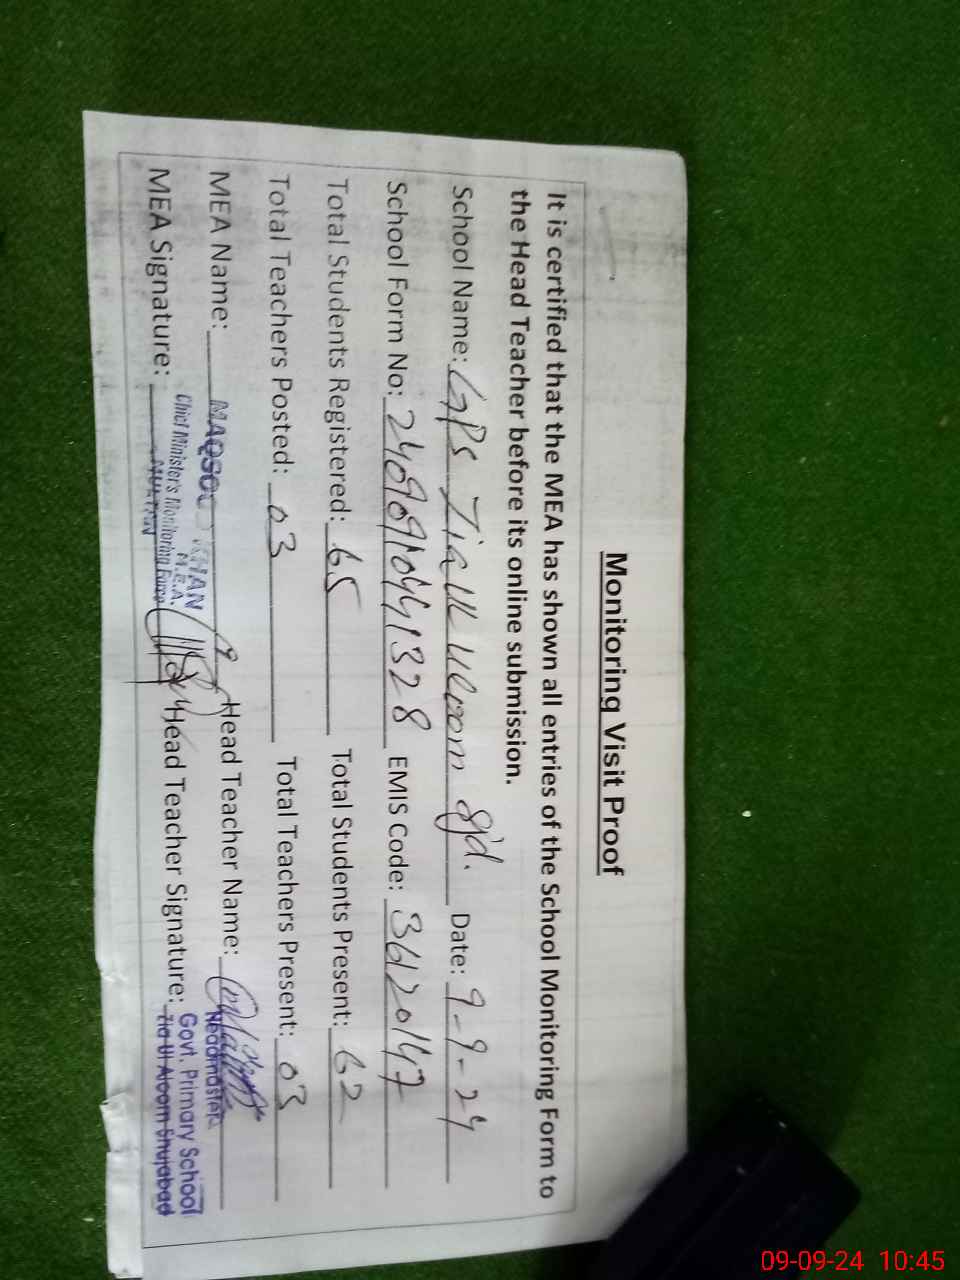 Monitoring Visit Proof
It is certified that the MEA has shown all entries of the School Monitoring Form to
the Head Teacher before its online submission.
School Name: GPS Zia Ul Uloom Sjd. Date: 9-9-24
School Form No: EMIS Code:
Total Students Registered: 65 Total Students Present: 62
Total Teachers Posted: 03 Total Teachers Present: 03
MEA Name: MAQSOOD KHAN Head Teacher Name:
M.E.A. Headmaster
Chief Minister's Monitoring Force Govt. Primary School
MEA Signature: MULTAN Head Teacher Signature: Zia Ul Aloom Shujabad
09-09-24 10:45